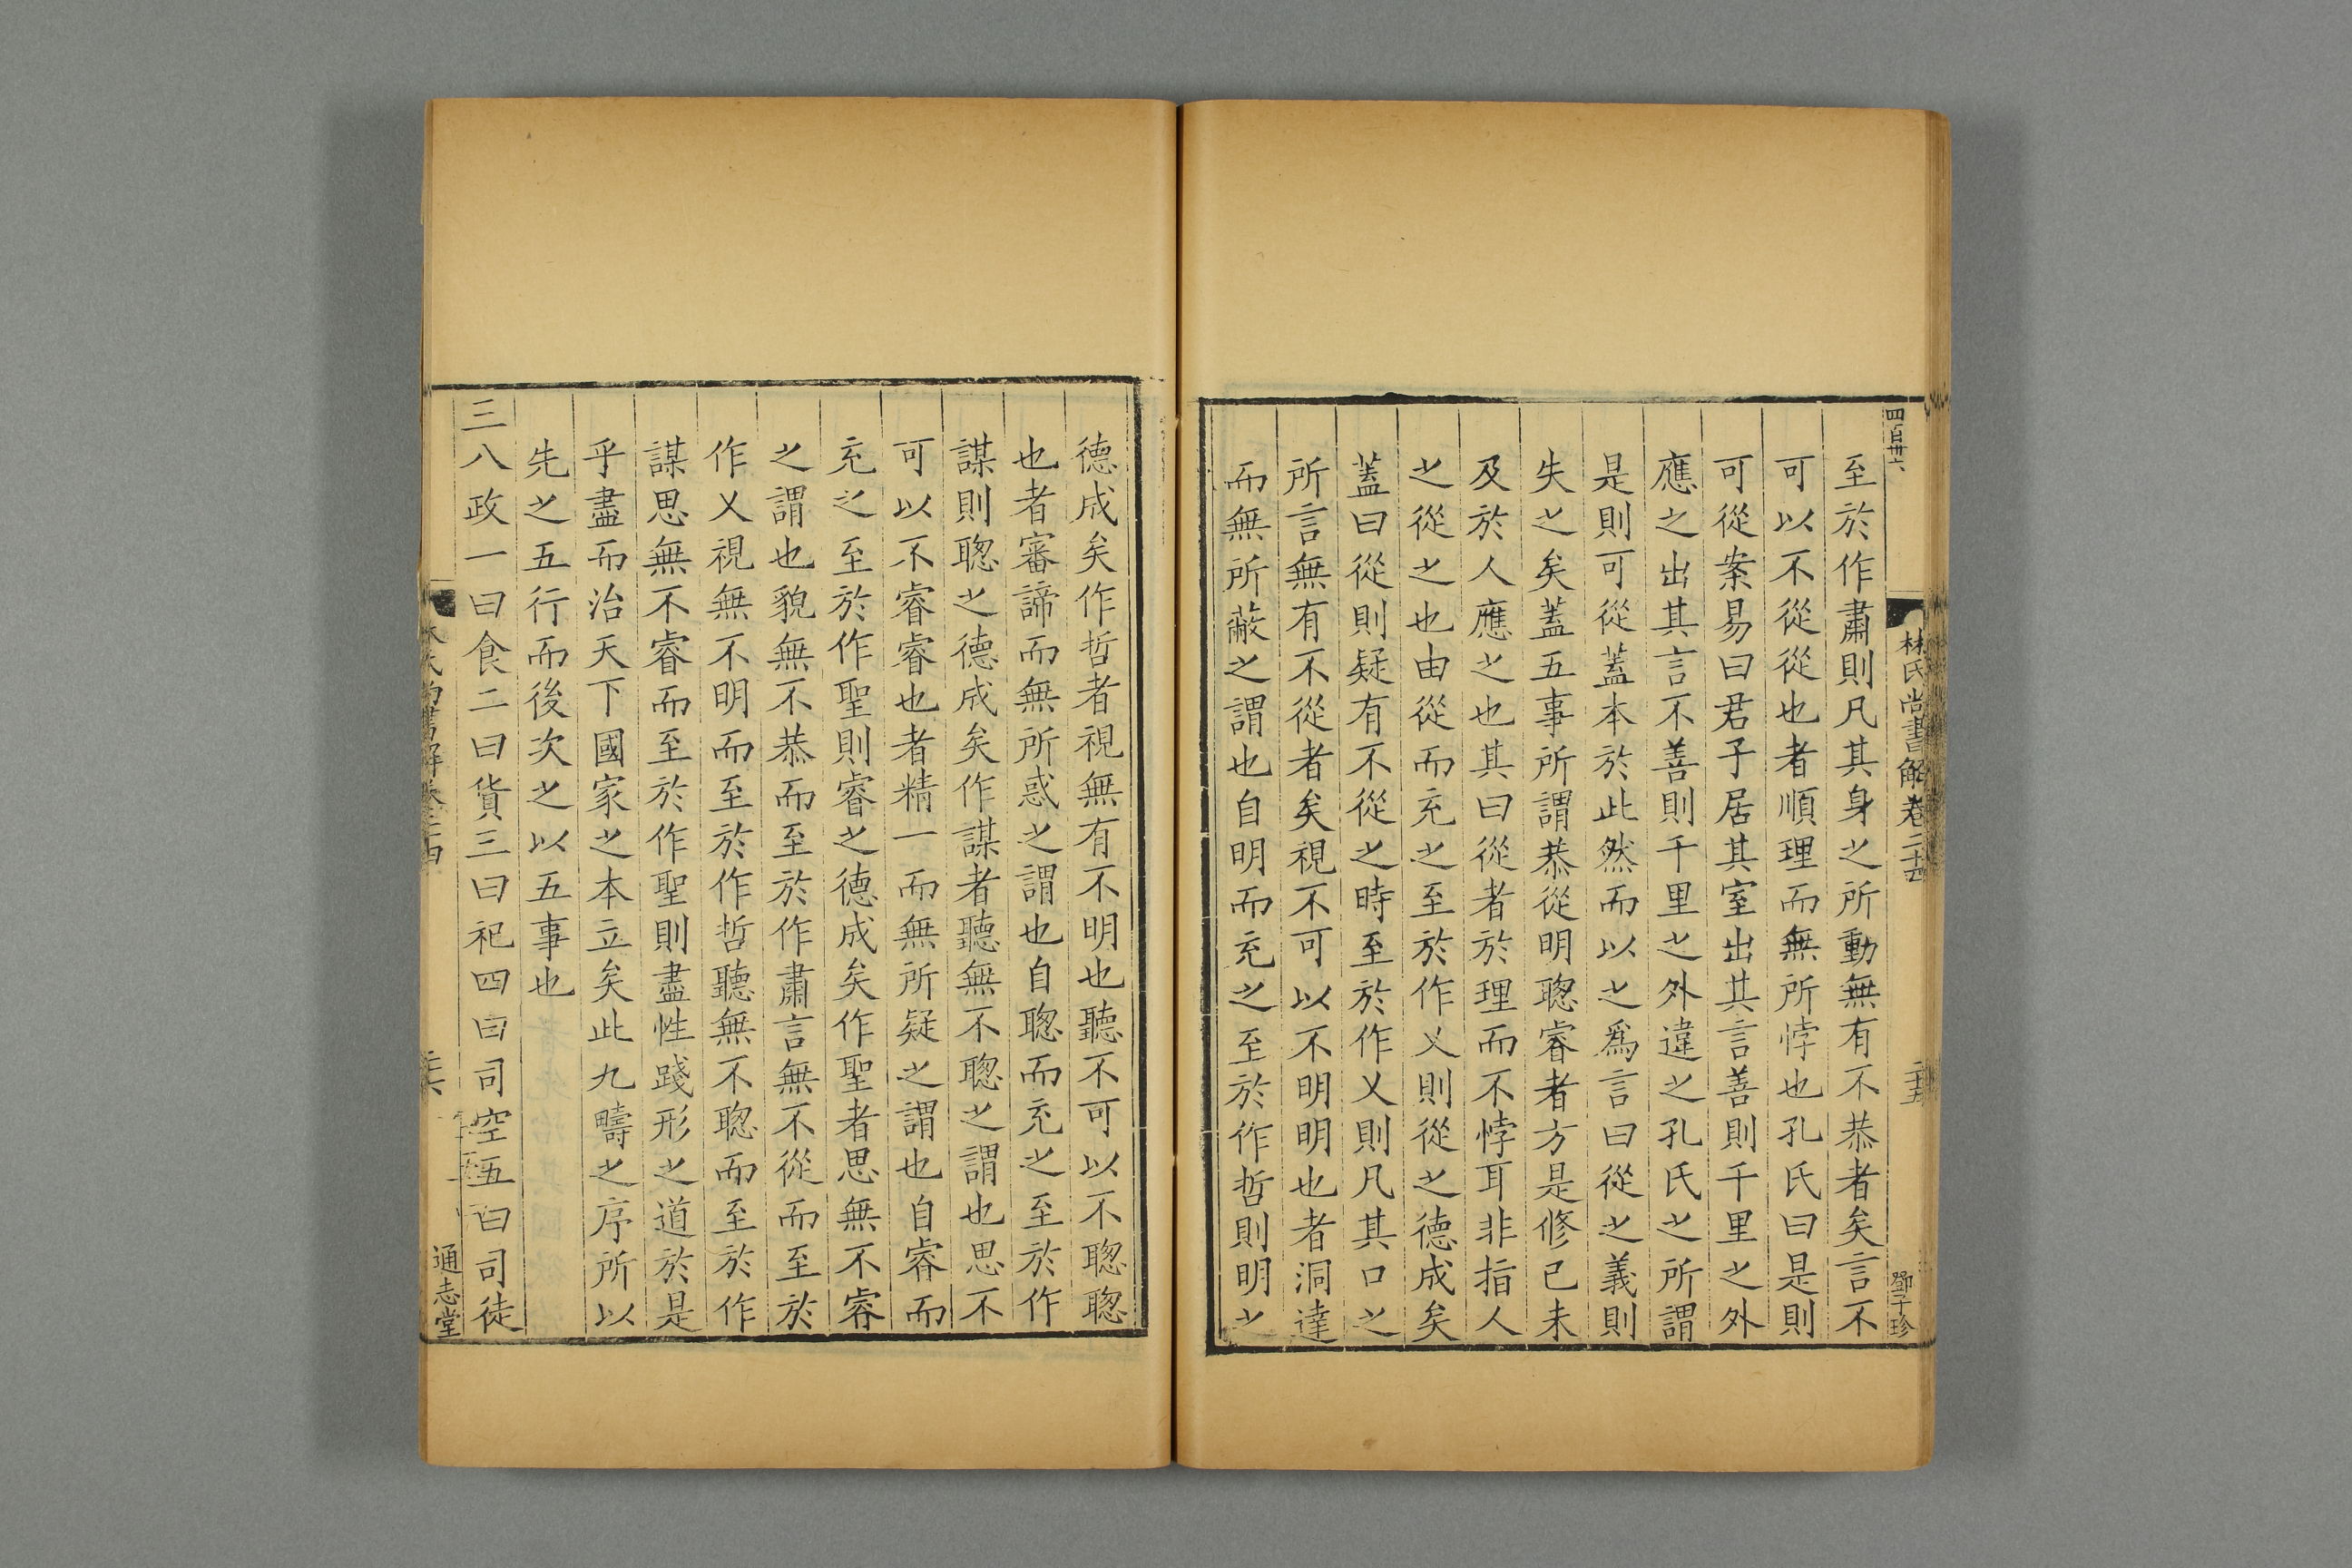 四百卅六
林氏尚書解卷二十四
二十五
鄧子珍
至於作肅則凡其身之所動無有不恭者矣言不
可以不從從也者順理而無所悖也孔氏曰是則
可從案易曰君子居其室出其言善則千里之外
應之出其言不善則千里之外違之孔氏之所謂
是則可從蓋本於此然而以之爲言曰從之義則
失之矣蓋五事所謂恭從明聦睿者方是修已未
及於人應之也其曰從者於理而不悖耳非指人
之從之也由從而充之至於作乂則從之德成矣
蓋曰從則疑有不從之時至於作乂則凡其口之
所言無有不從者矣視不可以不明明也者洞達
而無所蔽之謂也自明而充之至於作哲則明之
德成矣作哲者視無有不明也聽不可以不聦聦
也者審諦而無所惑之謂也自聦而充之至於作
謀則聦之德成矣作謀者聽無不聦之謂也思不
可以不睿睿也者精一而無所疑之謂也自睿而
充之至於作聖則睿之德成矣作聖者思無不睿
之謂也貌無不恭而至於作肅言無不從而至於
作乂視無不明而至於作哲聽無不聦而至於作
謀思無不睿而至於作聖則盡性踐形之道於是
乎盡而治天下國家之本立矣此九疇之序所以
先之五行而後次之以五事也
三八政一曰食二曰貨三曰祀四曰司空五曰司徒
林氏尚書解卷二十四
二十六
通志堂